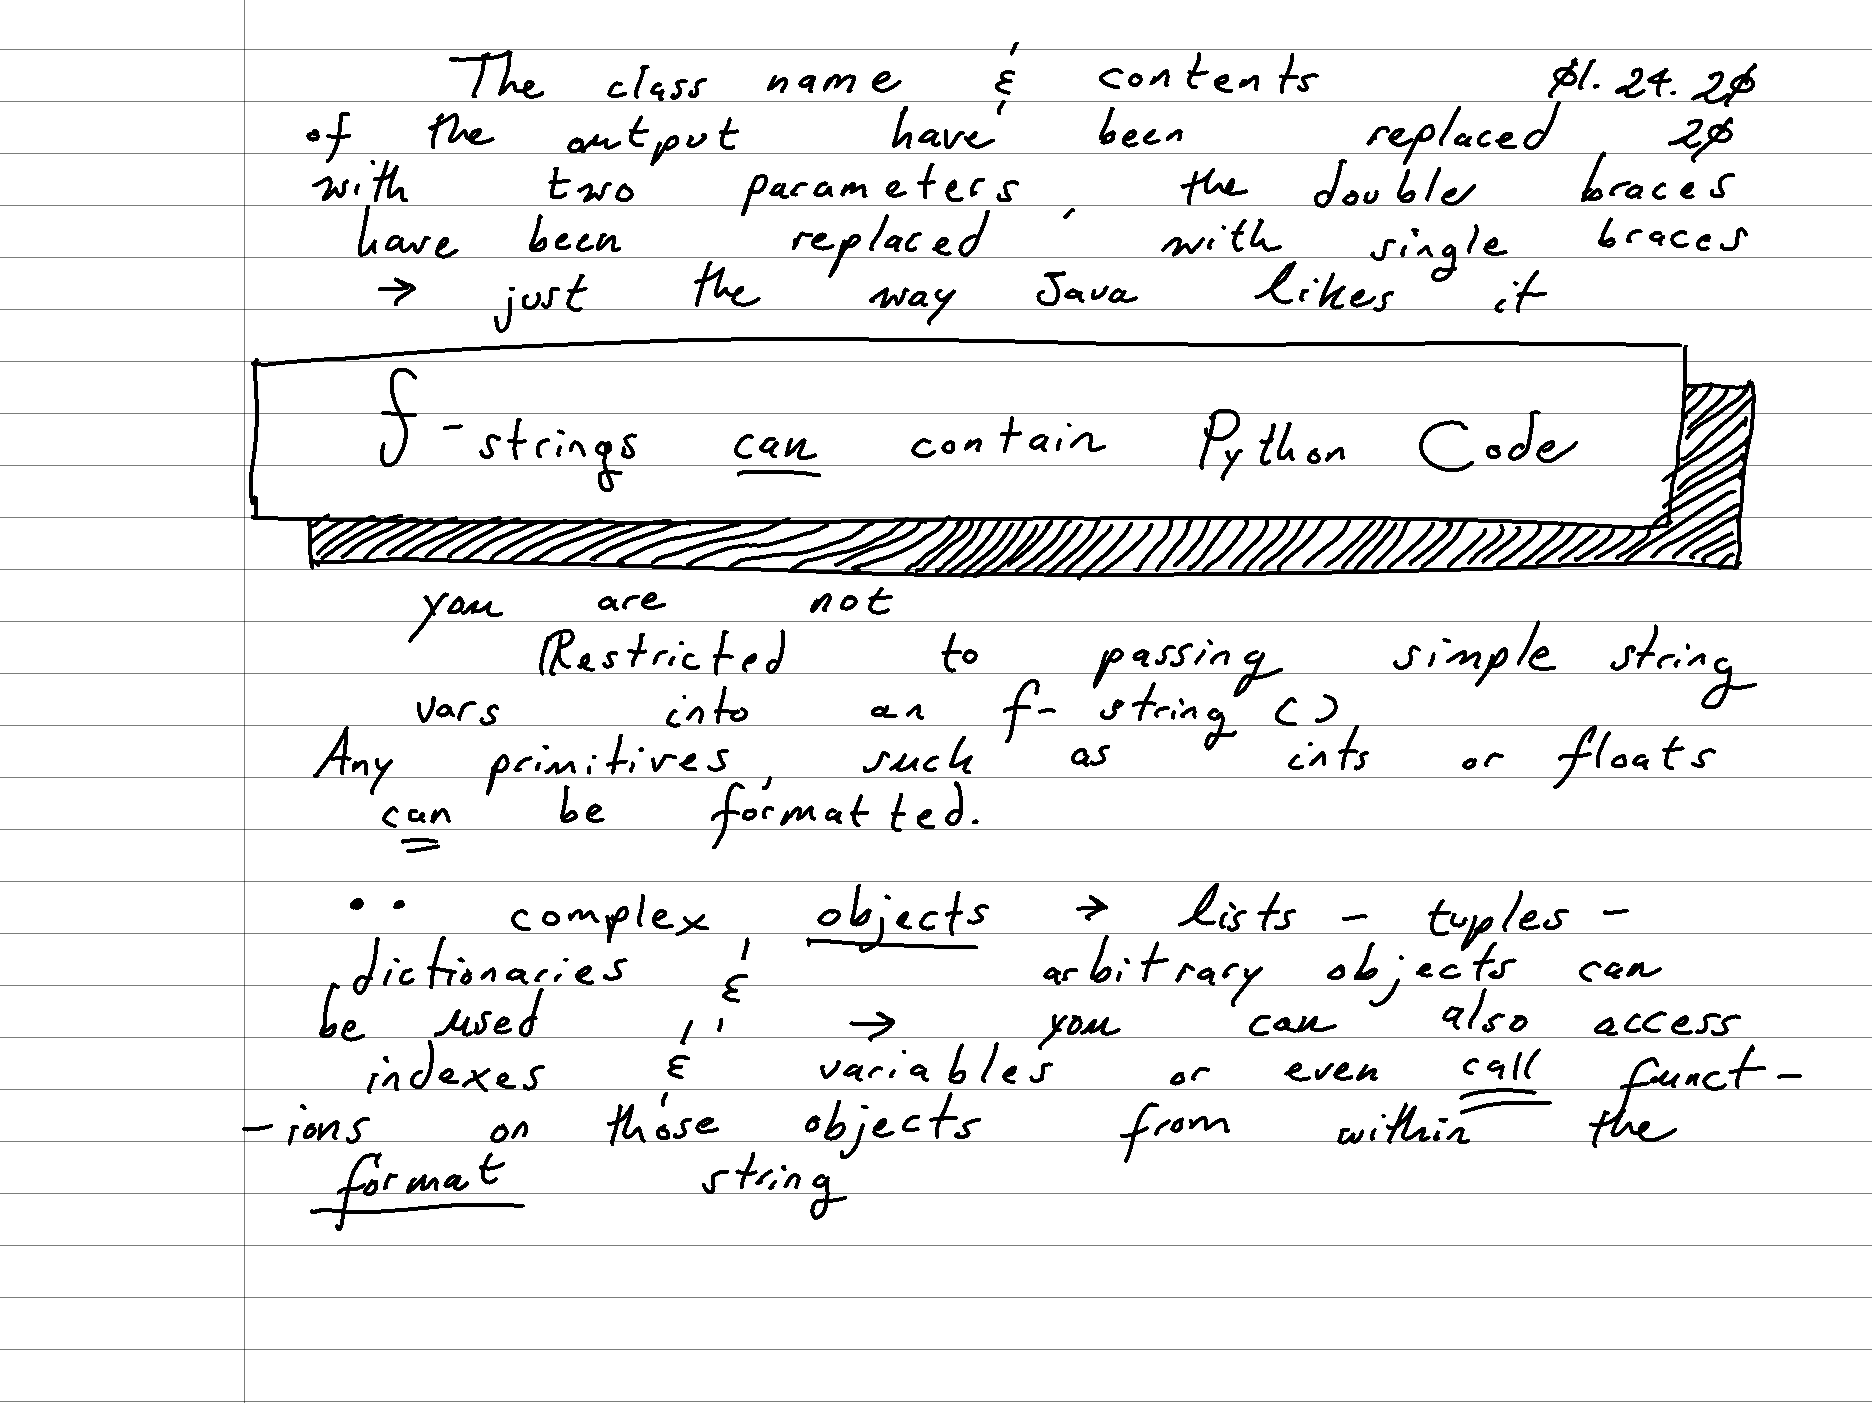 The class name & contents 01.24.20
of the output have been replaced 20
with two parameters, the double braces
have been replaced with single braces
→ just the way Java likes it
f-strings can contain Python Code
you are not
Restricted to passing simple string
vars into an f-string ()
Any primitives, such as ints or floats
can be formatted.
•• complex objects → lists - tuples -
dictionaries & arbitrary objects can
be used → you can also access
indexes & variables or even call funct-
-ions on those objects from within the
format string